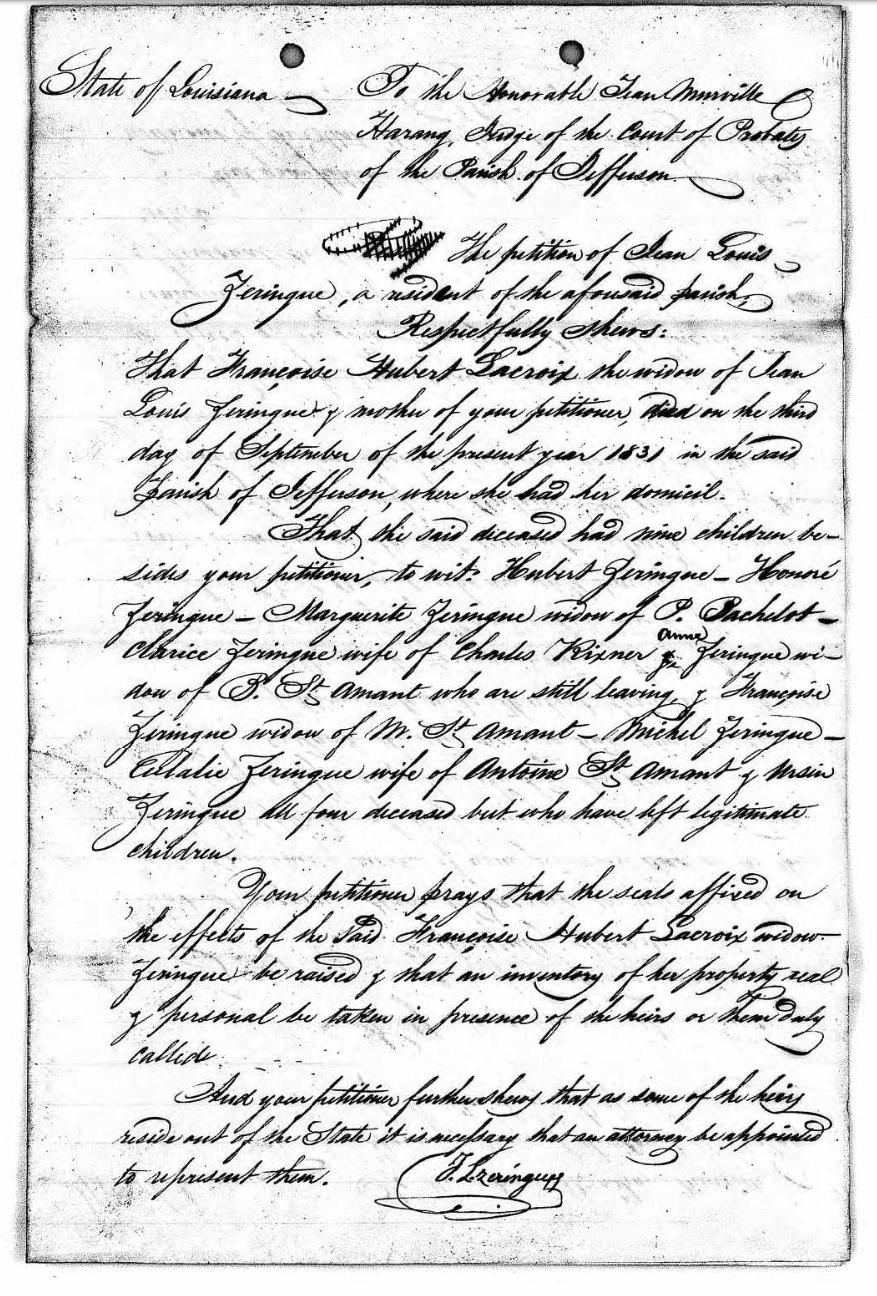 State of Louisiana
To the Honorable Jean Murville
Harang, Judge of the Court of Probates
of the Parish of Jefferson
The petition of Jean Louis
Zeringue, a resident of the aforesaid parish,
Respectfully shews:
That Françoise Hubert Lacroix the widow of Jean
Louis Zeringue & mother of your petitioner, died on the third
day of September of the present year 1831 in the said
Parish of Jefferson, where she had her domicil.
That the said deceased had nine children be-
sides your petitioner, to wit: Hubert Zeringue – Honoré
Zeringue – Marguerite Zeringue widow of P. Pachelot –
Clarice Zeringue wife of Charles Rixner & Anne Zeringue wi-
dow of B. St Amant who are still leaving, & Françoise
Zeringue widow of M. St Amant – Michel Zeringue –
Eulalie Zeringue wife of Antoine St Amant & Ursin
Zeringue all four deceased but who have left legitimate
children.
Your petitioner prays that the seals affixed on
the effects of the said Françoise Hubert Lacroix widow
Zeringue be raised & that an inventory of her property real
& personal be taken in presence of the heirs or them duly
callide
And your petitioner further shews that as some of the heirs
reside out of the State it is necessary that an attorney be appointed
to represent them.
J. Lzeringue